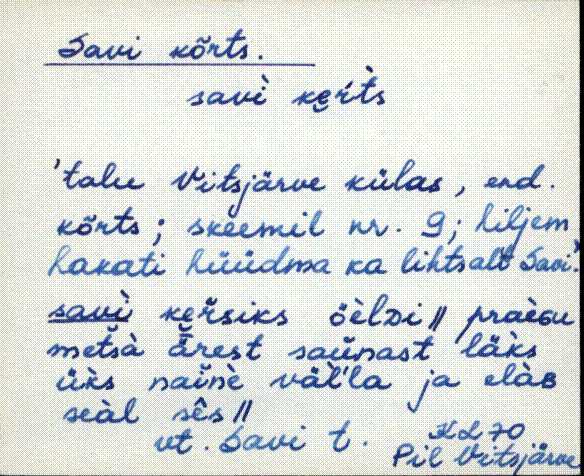 Savi kõrts.
savì ke̮r̀ts
'talu Vitsjärve külas, end.
kõrts; skeemil nr. 9; hiljem
hakati hüüdma ka lihtsalt Savi.'
savì ke̮r̆siks öèlᴅi // praèɢu
metšà ǟrest saŭnast läks
üks naĭnè väl'la ja elàʙ
seàl sê̮s //
vt. Savi t. KL 70
Pil Vitsjärve